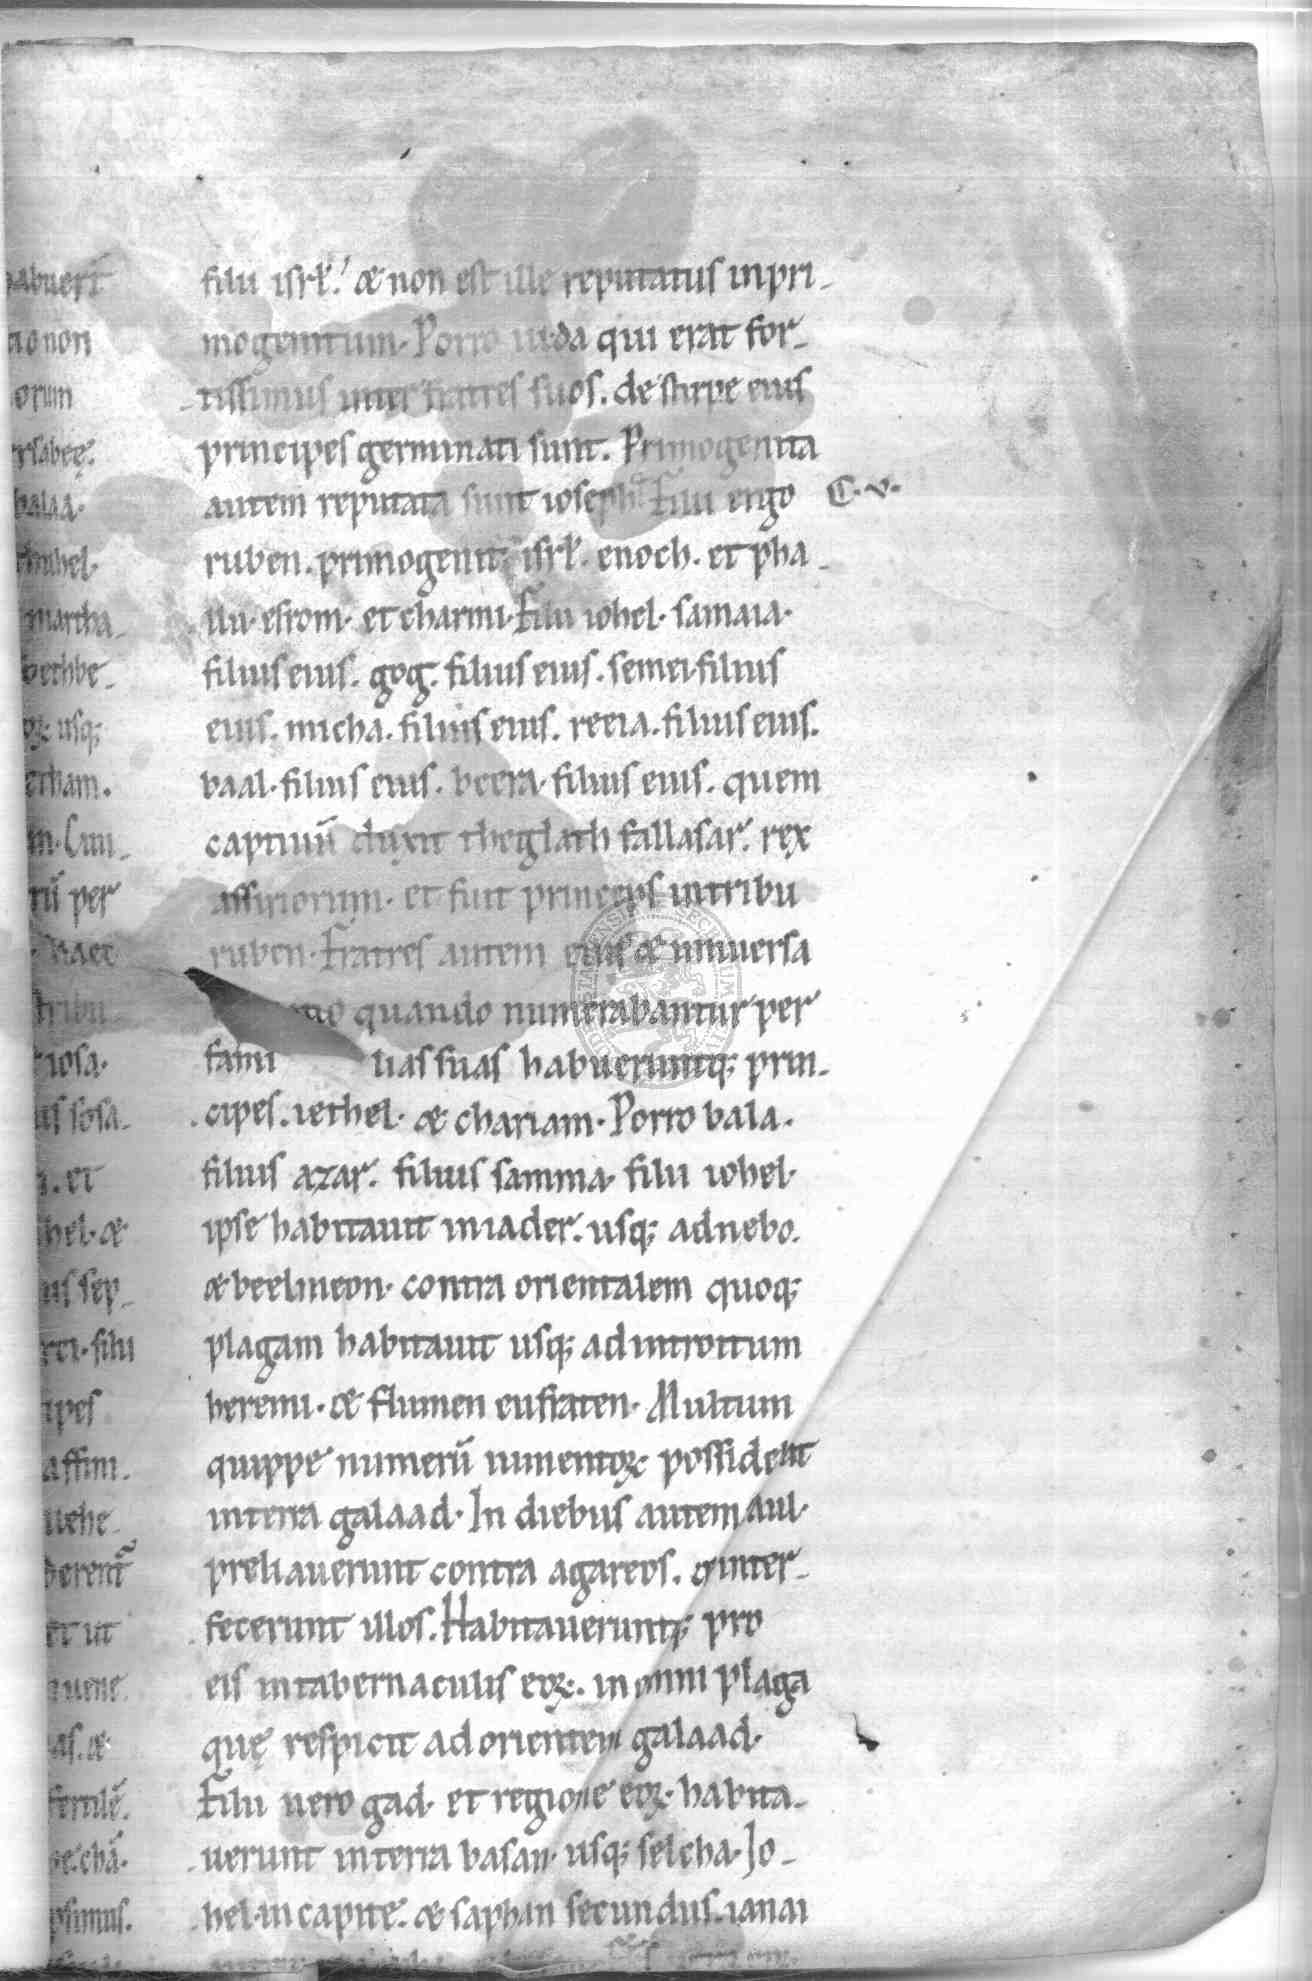 habuert
cio non
orum
rsabeę.
balaa.
thuhel.
martha-
bethbe-
oꝝ usq;
etham.
m. Cuu-
rū per
haec
tribu
iosa.
us sosa-
. et
hel. æ
us sep-
rci. filii
ipes
affini.
uehe-
berent
et ut
uene
as. æ
fertilē.
chā.
psimus.
filii isrł. æ non est ille reputatus in pri-
mogenitum. Porro iuda qui erat for-
tissimus inter fratres suos. de stirpe eius
principes germinati sunt. Primogenita
autem reputata sunt ioseph. Filii ergo
C. v.
ruben. primogenit; isrł. enoch. et pha-
llu. esrom. et charmi. Filii iohel. samaia.
filius eius. gog. filius eius. semei filius
eius. micha. filius eius. reeia. filius eius.
baal. filius eius. beera. filius eius. quem
captiuū duxit theglath fallasar. rex
assiriorum. et fuit princeps in tribu
ruben. Fratres autem eius æ uniuersa
quando numerabantur per
fami lias suas habueruntq; prin-
cipes. iethel. æ chariam. Porro bala.
filius azar. filius samma. filii iohel.
ipse habitauit in iader. usq; ad nebo.
æ beelmeon. contra orientalem quoq;
plagam habitauit usq; ad introitum
heremi. æ flumen eufraten. Multum
quippe numerū iumentoꝝ possident
in terra galaad. In diebus autem aul.
preliauerunt contra agareos. & inter-
fecerunt illos. Habitaueruntq; pro
eis in tabernaculis eoꝝ. in omni plaga
quę respicit ad orientem galaad.
Filii uero gad. et regione eoꝝ. habita-
uerunt in terra basan. usq; selcha. Jo-
hel. in capite. æ saphan secundus. ianai